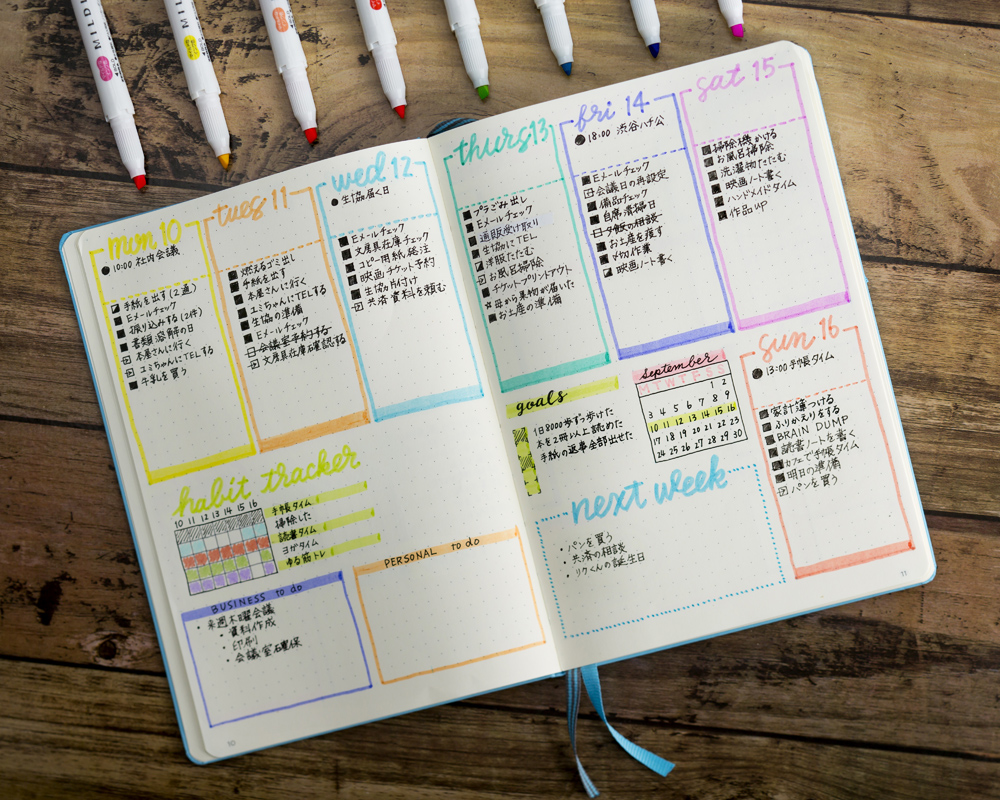 MILDLI
MILDLI
mon 10
10:00 社内会議
手紙を出す(2通)
Eメールチェック
振り込みする(2件)
書類溶解の日
本屋さんに行く
ユミちゃんにTELする
牛乳を買う
tues 11
燃えるゴミ出し
手紙を出す
本屋さんに行く
ユミちゃんにTELする
生協の準備
Eメールチェック
会議室予約する
文房具在庫確認する
wed 12
生協届く日
Eメールチェック
文房具在庫チェック
コピー用紙発注
映画チケット予約
生協片付け
共済資料を頼む
habit tracker
10 11 12 13 14 15 16
手帳タイム
掃除した
読書タイム
ヨガタイム
ゆる筋トレ
BUSINESS to do
来週木曜会議
資料作成
印刷
会議室確保
PERSONAL to do
10
thurs 13
プラごみ出し
Eメールチェック
通販受け取り
生協にTEL
洋服たたむ
お風呂掃除
チケットプリントアウト
母から果物が届いた
お土産の準備
fri 14
18:00 渋谷ハチ公
Eメールチェック
会議日の再設定
備品チェック
自席清掃日
夕飯の相談
お土産を渡す
〆切作業
映画ノート書く
sat 15
掃除機かける
お風呂掃除
洗濯物たたむ
映画ノート書く
ハンドメイドタイム
作品UP
goals
1日8000歩ずつ歩けた
本を2冊以上読めた
手紙の返事全部出せた
september
M T W T F S S
1 2
3 4 5 6 7 8 9
10 11 12 13 14 15 16
17 18 19 20 21 22 23
24 25 26 27 28 29 30
sun 16
13:00 手帳タイム
家計簿つける
ふりかえりをする
BRAIN DUMP
読書ノートを書く
カフェで手帳タイム
明日の準備
パンを買う
next week
パンを買う
共済の相談
リクくんの誕生日
11